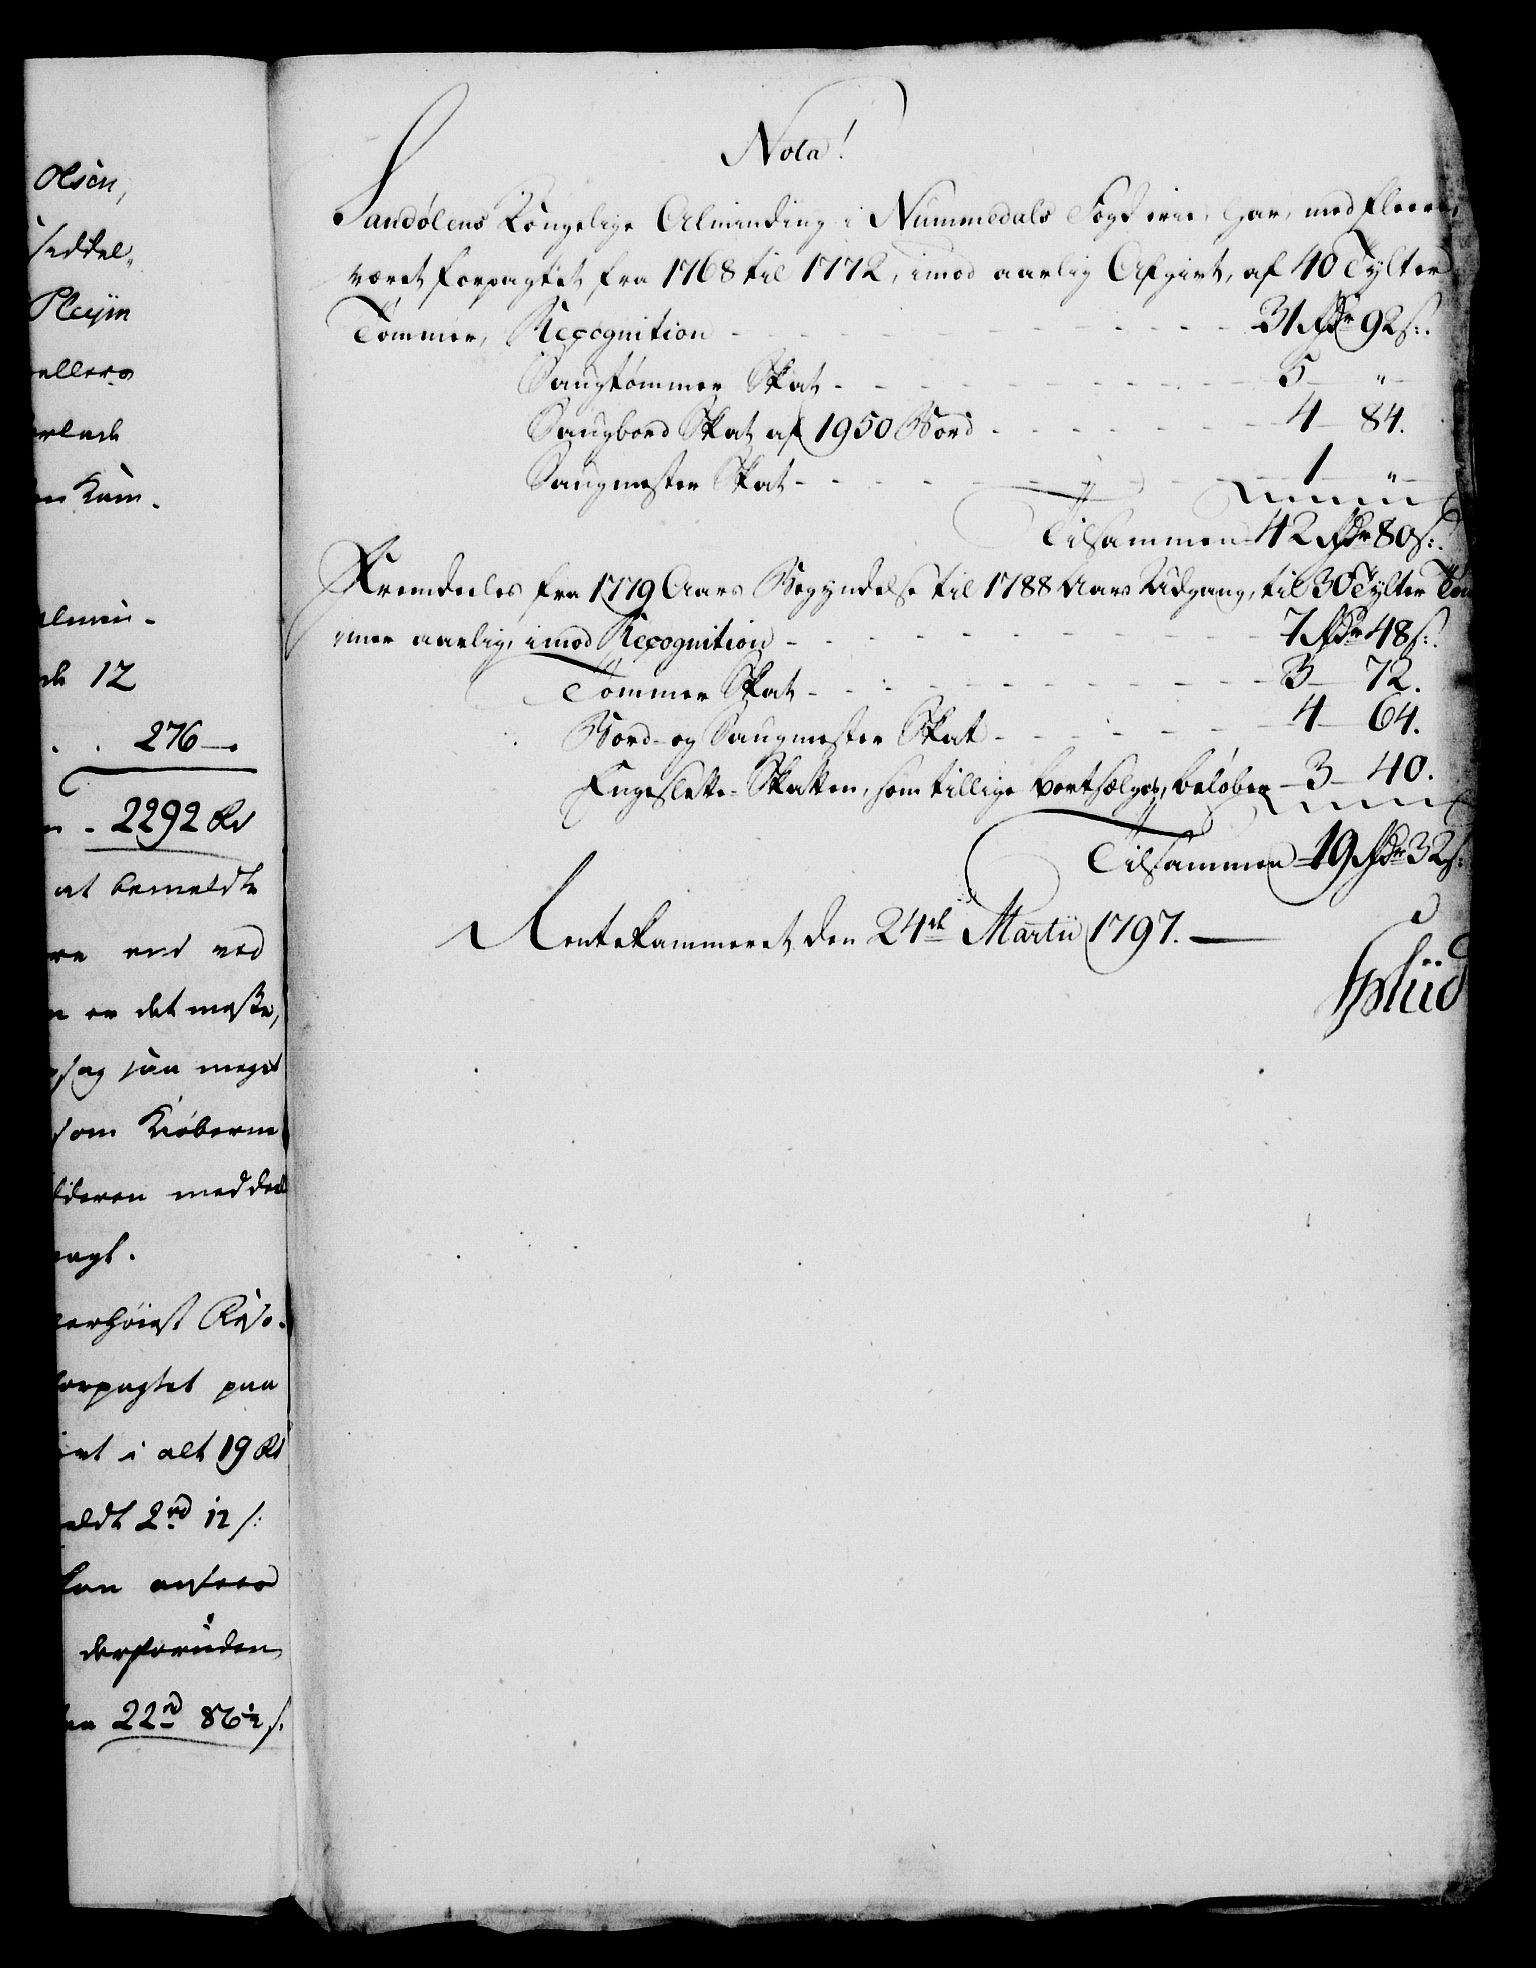 Olsen,
seddel,
Pleijm
ellers
erlade
en Kam-
almin-
de 12
. . 276 -.
- 2292 Rd
at bemeldte
re end ved
n er det meste,
sag saa meget
som Kiøberne
lderen meddeel
agt.
erhøiest Reso-
forpagtet paa
int i alt 19 Rd
eldt 2 rd 12 s:
kan ansees
derforuden
22 rd 86½ s.
Nota!
Sandølens Kongelige Alminding i Nummedals Fogderie, har, med fleere,
været forpagtet fra 1768 til 1772, imod aarlig Afgivt, af 40 Tylter
Tømmer, Recognition - - - 31 Rdr 92 s:.
Saugtømmer Skat - - - 5 - "
Saugbord Skat af 1950 Bord - - - 4 - 84.
Saugmester Skat - - - 1 - "
Tilsammen 42 Rdr 80 s:.
Fremdeeles fra 1779 Aars Begyndelse til 1788 Aars Udgang, til 30 Tylter Tøm
mer aarlig, imod Recognition - - - 7 Rdr 48 s:.
Tømmer Skat - - - 3 - 72.
Bord- og Saugmester Skat - - - 4 - 64.
Engeslette-Skatten, som tillige bortsælges, beløber - 3 - 40.
Tilsammen 19 Rdr 32 s:
Rentekammeret, den 24de Martii 1797. —